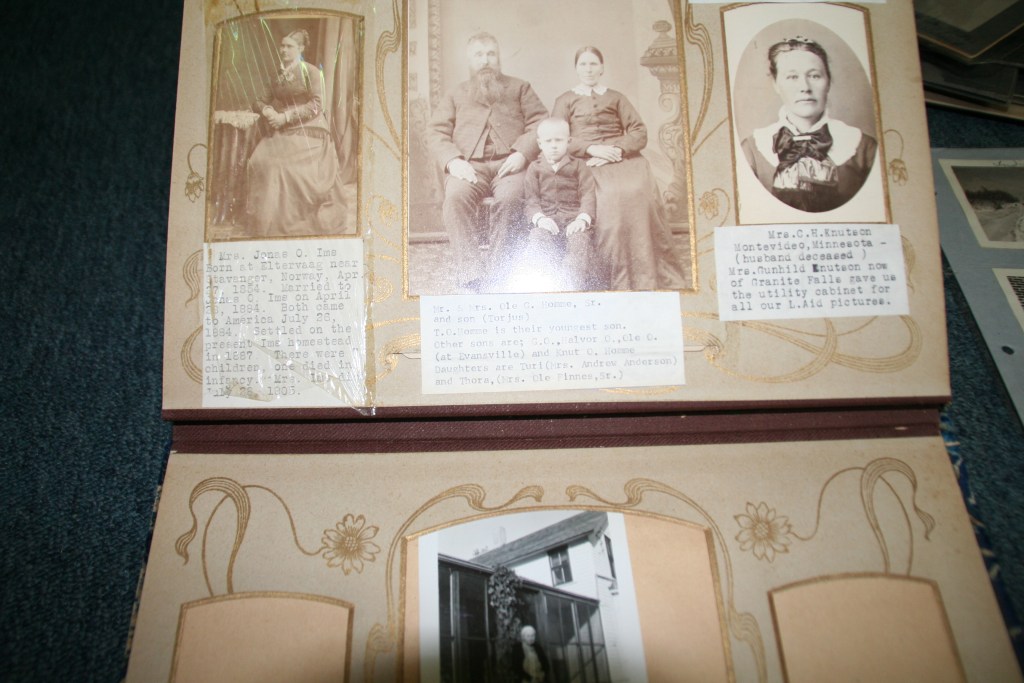 Mrs. Jonas O. Ims
Born at Eltervaag near
Stavanger, Norway, Apr.
1854. Married to
Jonas O. Ims on April
1894. Both came
to America July 28,
1884. Settled on the
present Ims homestead
in 1887 There were
children, one died in
infancy. Mrs.
1903.
Mr. & Mrs. Ole G. Homme, Sr.
and son (Torjus)
T.O.Homme is their youngest son.
Other sons are; G.O.,Halvor O.,Ole O.
(at Evansville) and Knut O. Homme
Daughters are Turi(Mrs. Andrew Anderson)
and Thora,(Mrs. Ole Finnes,Sr.)
Mrs.C.H.Knutson
Montevideo,Minnesota -
(husband deceased )
Mrs.Gunhild Knutson now
of Granite Falls gave us
the utility cabinet for
all our L.Aid pictures.